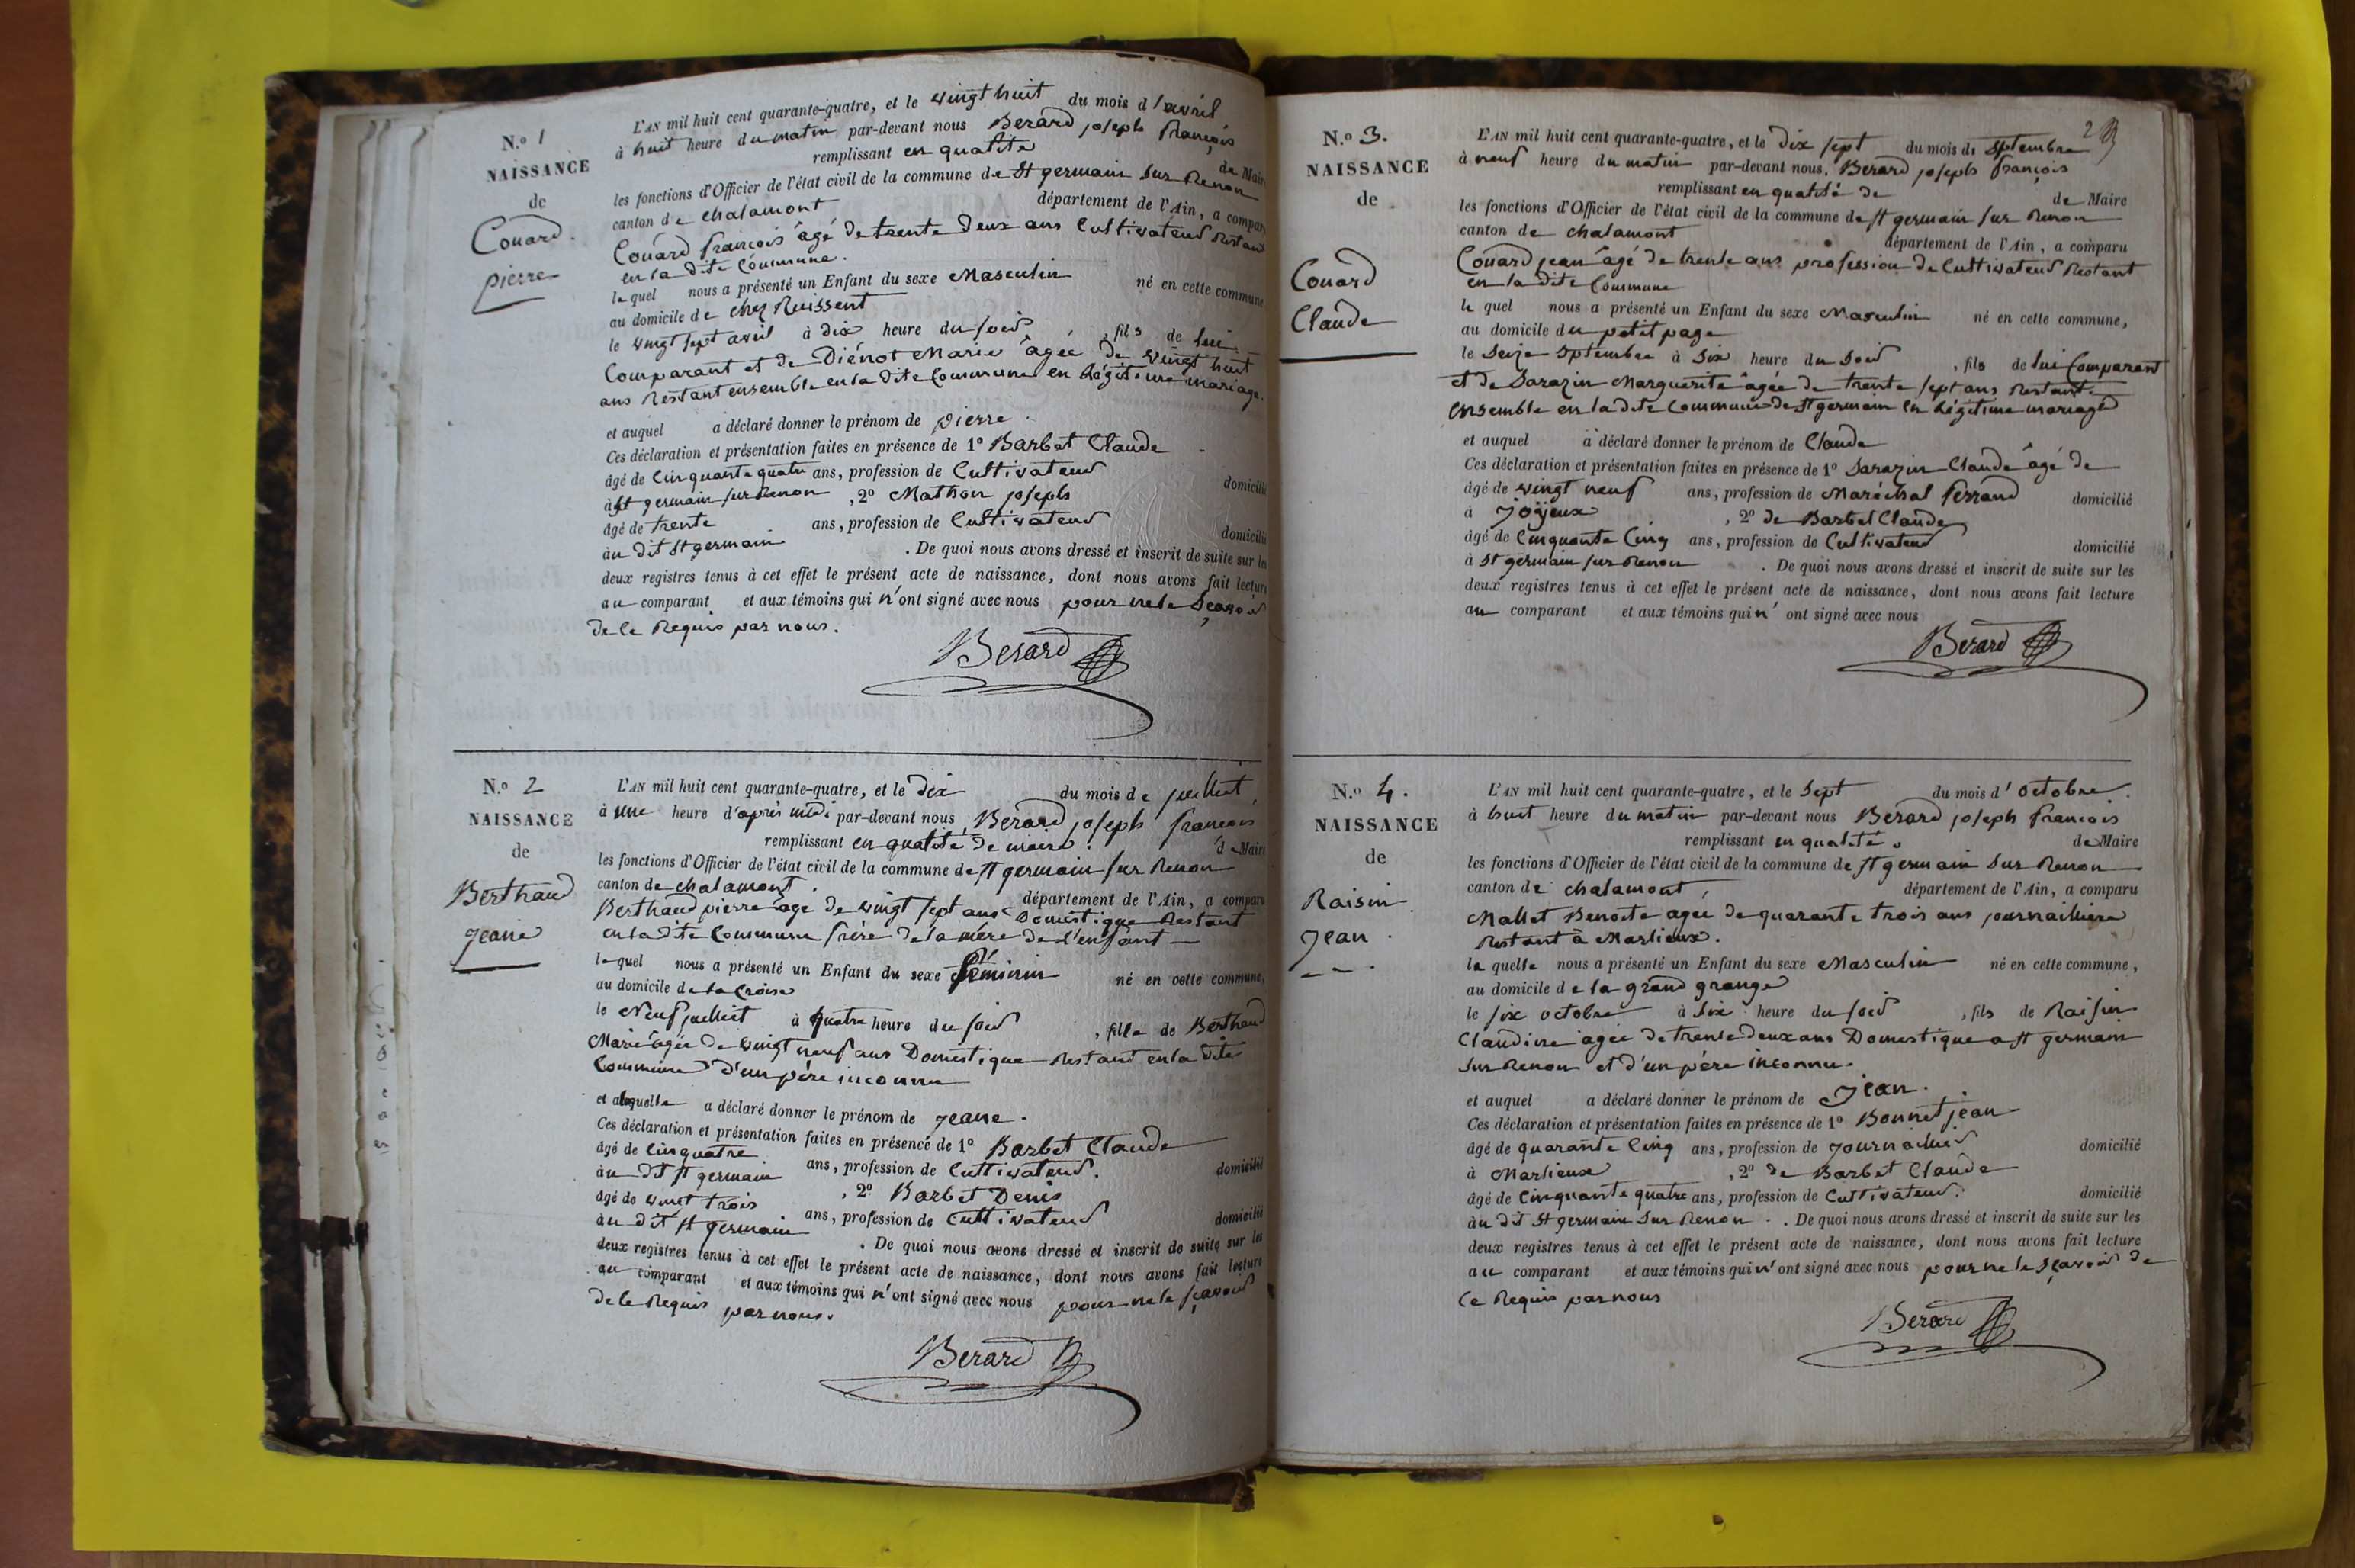 N.o 1
NAISSANCE
de
Couard.
pierre
L'AN mil huit cent quarante-quatre, et le vingt huit du mois d'avril
à huit heure du matin par-devant nous Berard joseph françois
remplissant en qualité de Maire
les fonctions d'Officier de l'état civil de la commune de St germain sur Renon
canton de chalamont département de l'Ain, a compar
Couard francois âgé de trente deux ans Cultivateur Restant
en la dite Commune.
lequel nous a présenté un Enfant du sexe Masculin né en cette commune
au domicile de chez Ruissent
le vingt sept avril à dix heure du soir, fils de lui
Comparant et de Diénot Marie âgée de vingt huit
ans Restant ensemble en la dite Commune en Légitime mariage.
et auquel a déclaré donner le prénom de pierre.
Ces déclaration et présentation faites en présence de 1o Barbet Claude
âgé de Cinquante quatre ans, profession de Cultivateur domicilié
à St germain sur Renon, 2o Mathon joseph
âgé de trente ans, profession de Cultivateur domicilié
au dit St germain. De quoi nous avons dressé et inscrit de suite sur les
deux registres tenus à cet effet le présent acte de naissance, dont nous avons fait lecture
au comparant et aux témoins qui n'ont signé avec nous pour ne le Sçavoir
de le Requis par nous.
Berard
N.o 2
NAISSANCE
de
Berthaud
jeane
L'AN mil huit cent quarante-quatre, et le dix du mois de juilliet,
à une heure d'après midi par-devant nous Berard joseph francois
remplissant en qualité de maire. de Maire
les fonctions d'Officier de l'état civil de la commune de St germain sur Renon
canton de chalamont. département de l'Ain, a comparu
Berthaud pierre âgé de vingt sept ans Domestique Restant
en la dite Commune frère de la mère de l'enfant
lequel nous a présenté un Enfant du sexe féminin né en cette commune,
au domicile de la Croise
le Neuf juilliet à quatre heure du soir, fille de Berthaud
Marie âgée de vingt neuf ans Domestique Restant en la dite
Commune d'un père inconnu
et a laquelle a déclaré donner le prénom de jeane.
Ces déclaration et présentation faites en présence de 1o Barbet Claude
âgé de Cinquatre ans, profession de Cultivateur. domicilié
au dit St germain, 2o Barbet Denis
âgé de vingt trois ans, profession de Cultivateur domicilié
au dit St germain. De quoi nous avons dressé et inscrit de suite sur les
deux registres tenus à cet effet le présent acte de naissance, dont nous avons fait lecture
au comparant et aux témoins qui n'ont signé avec nous pour ne le sçavoir
de le Requis par nous.
Berard
2
N.o 3.
NAISSANCE
de
Couard
Claude
L'AN mil huit cent quarante-quatre, et le dix sept du mois de Septembre
à neuf heure du matin par-devant nous. Berard joseph françois
remplissant en qualité de de Maire
les fonctions d'Officier de l'état civil de la commune de St germain sur Renon
canton de chalamont département de l'Ain, a comparu
Couard jean âgé de trente ans profession de Cultivateur Restant
en la dite Commune
le quel nous a présenté un Enfant du sexe Masculin né en cette commune,
au domicile du petit page
le Seize Septembre à Six heure du Soir, fils de lui Comparant
et de Sarazin Marguerite âgée de trente sept ans Restant
Ensemble en la dite Commune de St germain En Légitime mariage
et auquel a déclaré donner le prénom de Claude
Ces déclaration et présentation faites en présence de 1o Sarazin Claude âgé de
âgé de vingt neuf ans, profession de Maréchal ferrand domicilié
à joyeux, 2o de Barbet Claude
âgé de Cinquante Cinq ans, profession de Cultivateur domicilié
à St germain sur Renon. De quoi nous avons dressé et inscrit de suite sur les
deux registres tenus à cet effet le présent acte de naissance, dont nous avons fait lecture
au comparant et aux témoins qui n'ont signé avec nous
Berard
N.o 4.
NAISSANCE
de
Raisin
jean.
L'AN mil huit cent quarante-quatre, et le Sept du mois d'octobre.
à huit heure du matin par-devant nous Berard joseph francois
remplissant en qualité. de Maire
les fonctions d'Officier de l'état civil de la commune de St germain sur Renon
canton de chalamont, département de l'Ain, a comparu
Mallet Benoite agée de quarante trois ans journaillière
Restant à Marlieux.
la quelle nous a présenté un Enfant du sexe Masculin né en cette commune,
au domicile de la grand grange
le six octobre à Six heure du soir, fils de Raisin
Claudine agée de trente deux ans Domestique a St germain
sur Renon et d'un père inconnu.
et auquel a déclaré donner le prénom de jean.
Ces déclaration et présentation faites en présence de 1o Bonnet jean
âgé de quarante Cinq ans, profession de journaillier domicilié
à Marlieux, 2o de Barbet Claude
âgé de Cinquante quatre ans, profession de Cultivateur. domicilié
au dit St germain Sur Renon. De quoi nous avons dressé et inscrit de suite sur les
deux registres tenus à cet effet le présent acte de naissance, dont nous avons fait lecture
au comparant et aux témoins qui n'ont signé avec nous pour ne le sçavoir de
Ce Requis par nous
Berard